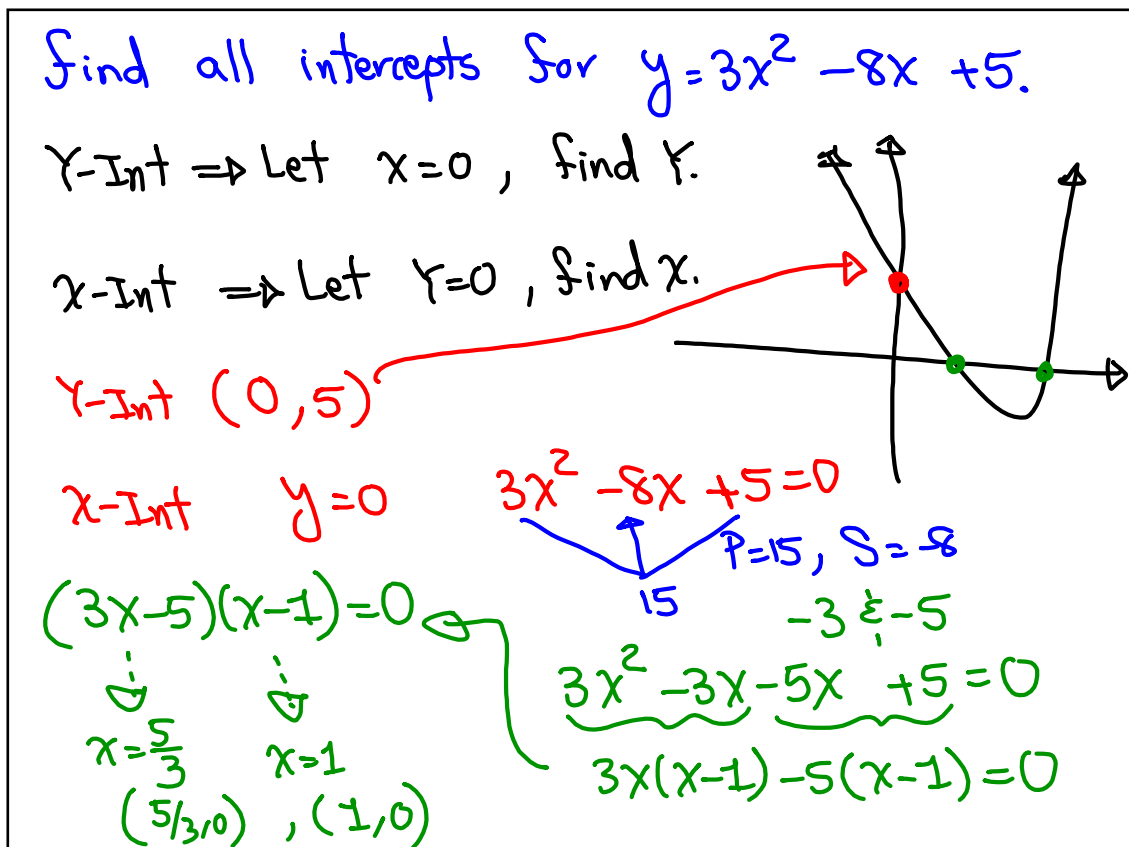 find all intercepts for y=3x² -8x +5.
Y-Int ⇒ Let x=0, find Y.
x-Int ⇒ Let Y=0, find x.
Y-Int (0,5)
x-Int y=0 3x² -8x +5=0
P=15, S=-8
15
-3 & -5
(3x-5)(x-1)=0
3x² -3x -5x +5=0
x=5/3 x=1
3x(x-1)-5(x-1)=0
(5/3,0), (1,0)